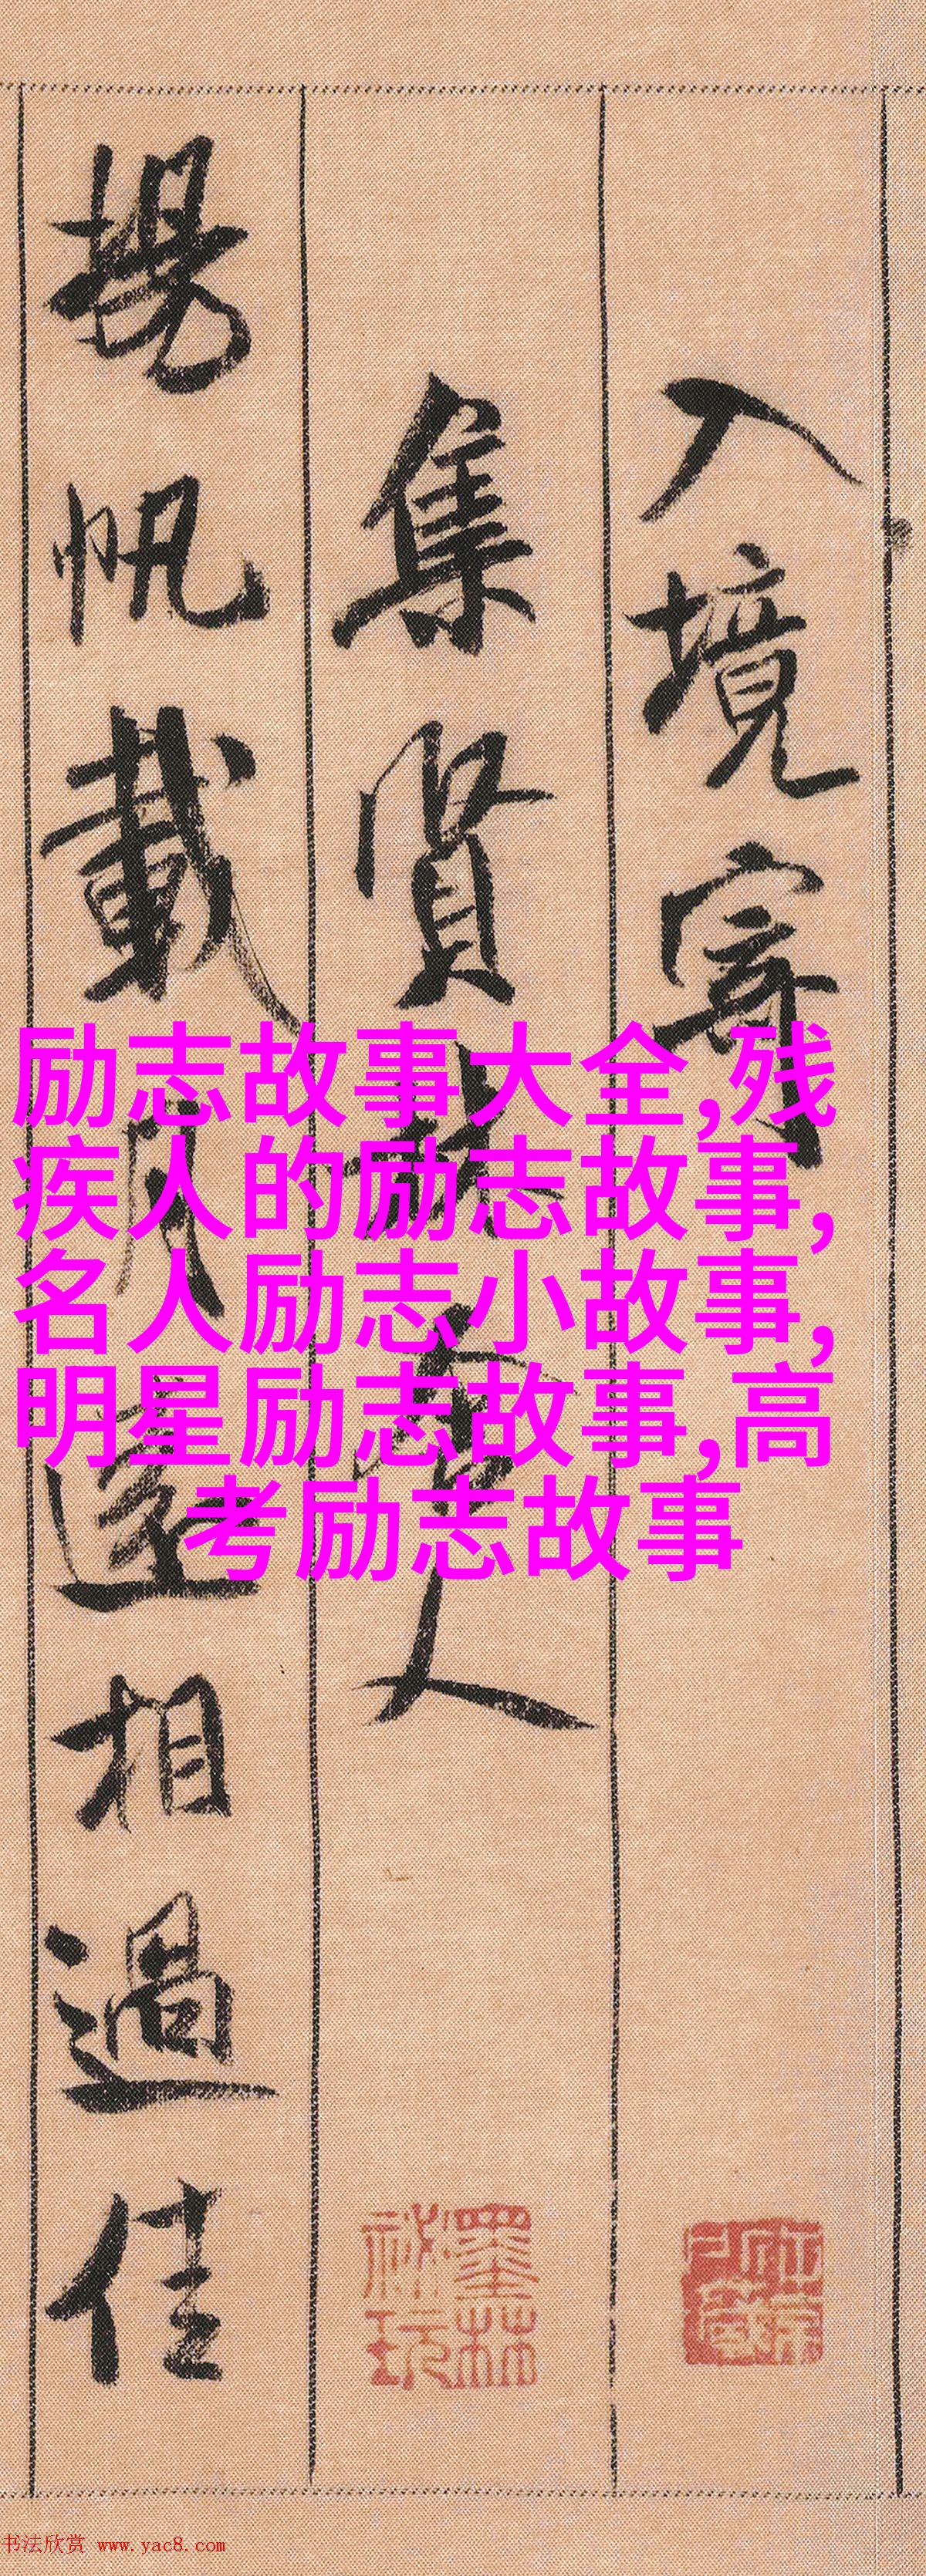 入境寄
集賢林舍人
揚帆載月遠相過佳
励志故事大全,残
疾人的励志故事,
名人励志小故事,
明星励志故事,高
考励志故事
墨林
祕玩
书法欣赏 www.yac8.com